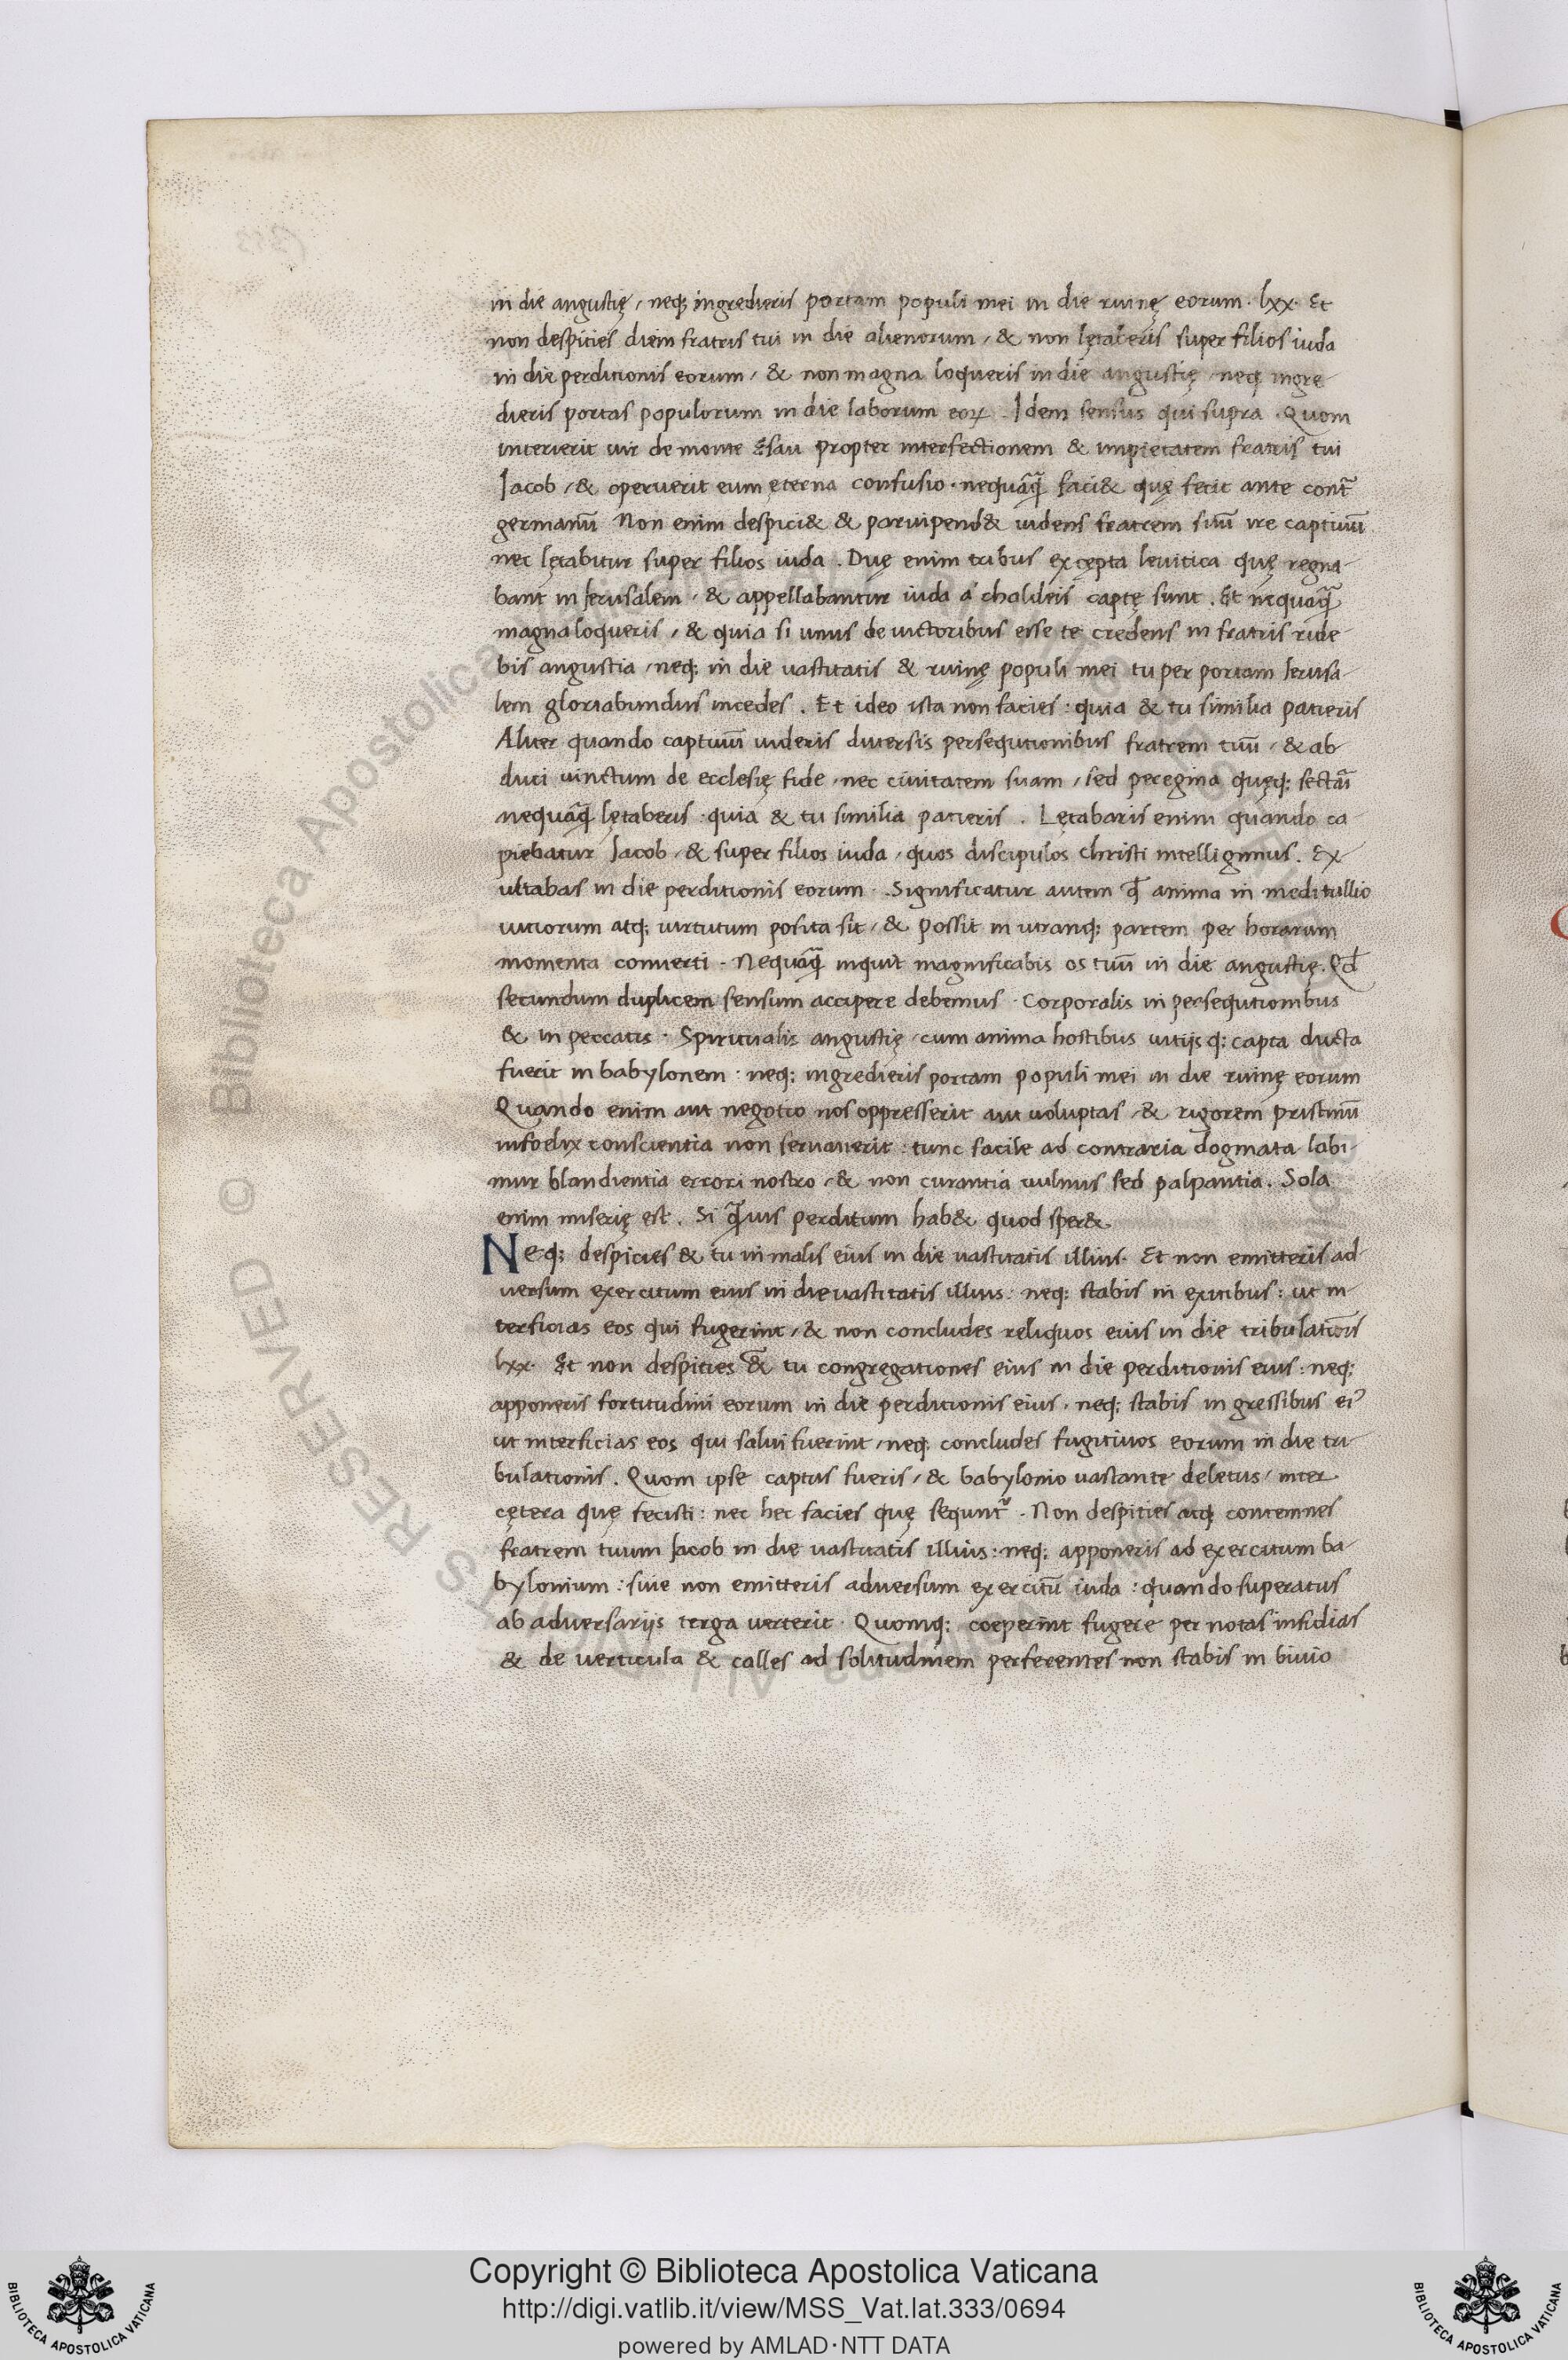 in die angustię, neq; ingredieris portam populi mei in die ruinę eorum. lxx. Et
non despicies diem fratris tui in die alienorum, & non lętaberis super filios iuda
in die perditionis eorum, & non magna loqueris in die angustię neq; ingre-
dieris portas populorum in die laborum eoꝝ. Idem sensus qui supra. Quom
interierit uir de monte Esau propter interfectionem & impietatem fratris tui
Iacob, & operuerit eum ęterna confusio. nequāq̄ faci& quę fecit ante cont̄
germanū Non enim despici& & paruipend& uidens fratrem suū ire captiuū
nec lętabitur super filios iuda. Duę enim tribus excępta leuitica quę regna-
bant in Ierusalem, & appellabantur iuda a chaldeis captę sunt. Et nequaq̄
magna loqueris, & quia si unus de uictoribus esse te credens in fratris ride-
bis angustia, neq; in die uastitatis & ruinę populi mei tu per portam Ierusa-
lem gloriabundus incedes. Et ideo ista non facies: quia & tu similia patieris
Aliter quando captiuū uideris diuersis persequtionibus fratrem tuū, & ab-
duci uinctum de ecclesię fide, nec ciuitatem suam, sed peregina quęq; sectāī
nequāq̄ lętaberis. quia & tu similia patieris. Lętabaris enim quando ca-
piebatur Iacob, & super filios iuda, quos discipulos christi intelligimus. Ex-
ultabas in die perditionis eorum. Significatur autem q̄ anima in meditullio
uitiorum atq; uirtutum posita sit, & possit in utranq; partem per horarum
momenta conuerti. Nequāq̄ inquit magnificabis os tuū in die angustię. Qd̄
secundum duplicem sensum accipere debemus. Corporalis in persequtionibus
& in peccatis. Spiritualis angustię, cum anima hostibus uitijs q; capta ducta
fuerit in babylonem: neq; ingredieris portam populi mei in die ruinę eorum
Quando enim aut negotio nos oppresserit aut uoluptas, & rigorem pristinū
infoelix conscientia non seruauerit: tunc facile ad contraria dogmata labi-
mur blandientia errori nostro, & non curantia uulnus sed palpantia. Sola
enim miserię est. Si q̄uis perditum hab& quod sper&
Neq; despicies & tu in malis eius in die uastitatis illius. Et non emitteris ad-
uersum exercitum eius in die uastitatis illius: neq; stabis in exitibus: ut in-
terficias eos qui fugerint, & non concludes reliquos eius in die tribulatiōis
lxx. Et non despicies & tu congregationes eius in die perditionis eius: neq;
apponeris fortitudini eorum in die perditionis eius, neq; stabis in gressibus ei᾽
ut interficias eos qui salui fuerint, neq; concludes fugitiuos eorum in die tri-
bulationis. Quom ipse captus fueris, & babylonio uastante deletus, inter
cętera quę fecisti: nec hec facies quę sequnt᷑. Non despicies atq; contemnes
fratrem tuum Iacob in die uastitatis illius: neq; apponeris ad exercitum ba-
bylonium: siue non emitteris aduersum exercitū iuda: quando superatus
ab aduersarijs terga uerterit. Quomq; coeperint fugere per notas insidias
& de uerticula & calles ad solitudinem perferentes non stabis in biuio
Copyright © Biblioteca Apostolica Vaticana
http://digi.vatlib.it/view/MSS_Vat.lat.333/0694
powered by AMLAD·NTT DATA